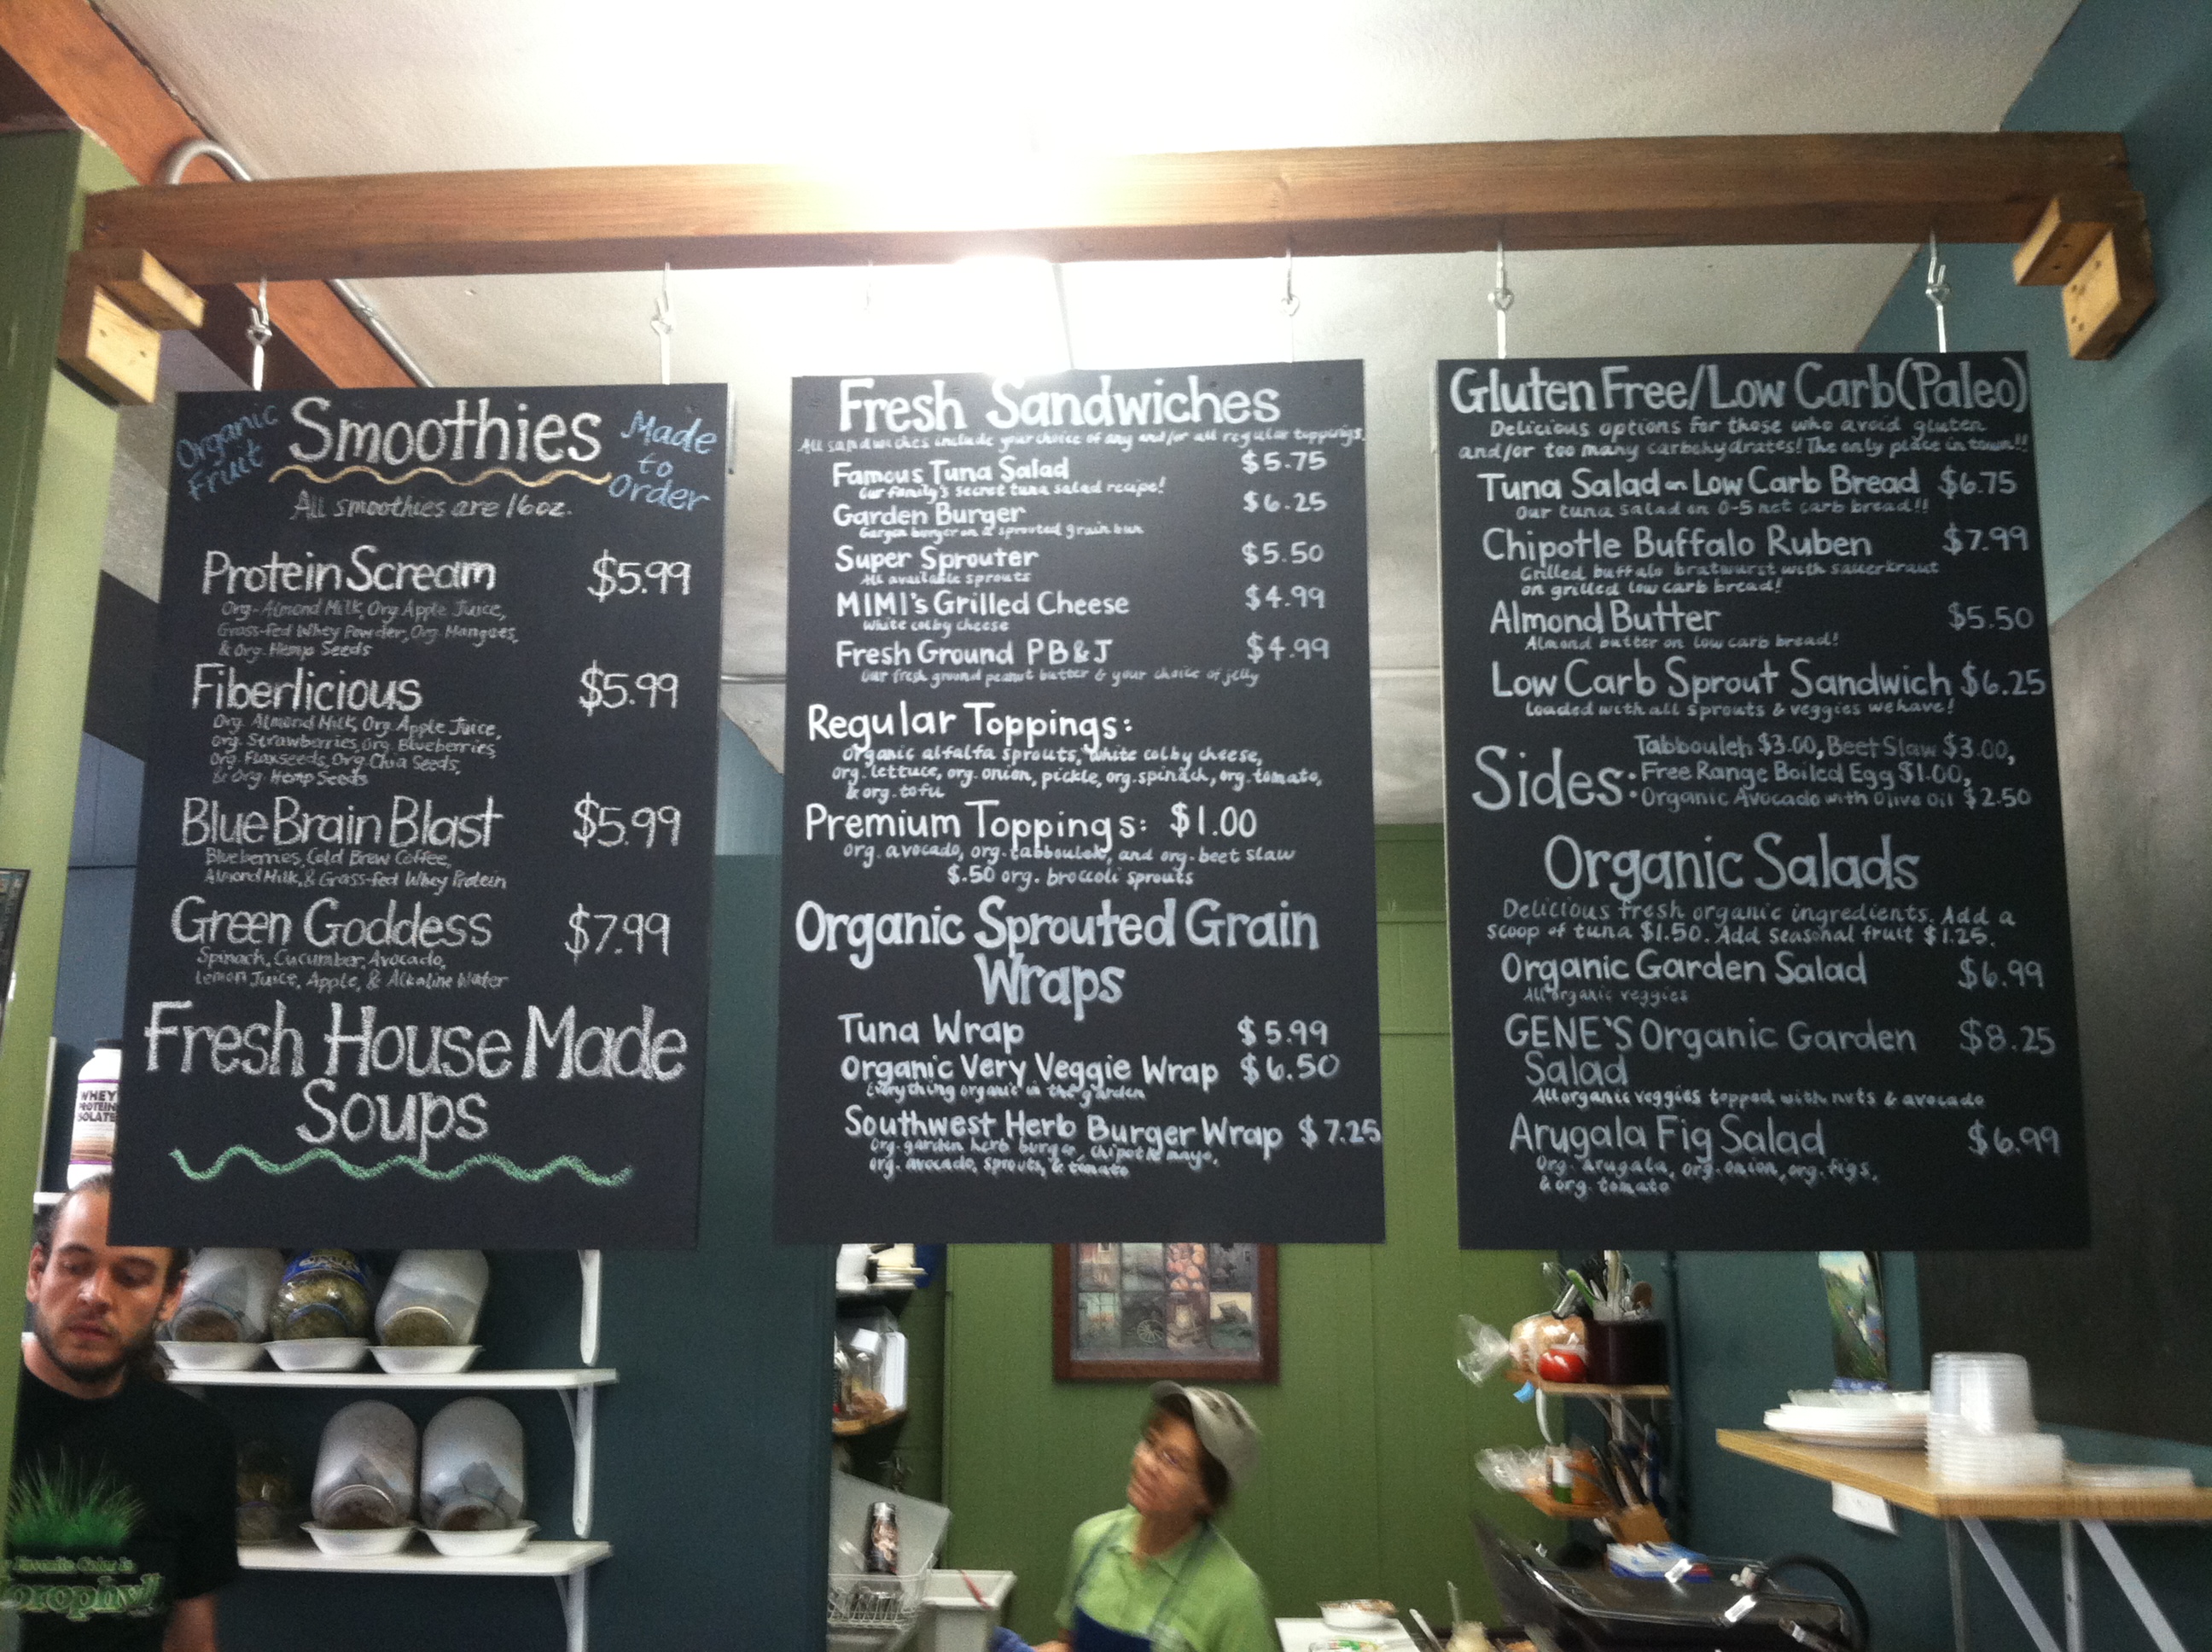 Organic
Fruit
Smoothies
Made
to
Order
All smoothies are 16oz.
Protein Scream $5.99
Org. Almond Milk, Org Apple Juice,
Grass-fed Whey Powder, Org. Mangoes,
& Org. Hemp Seeds
Fiberlicious $5.99
Org. Almond Milk, Org. Apple Juice,
Org. Strawberries, Org. Blueberries,
Org. Flaxseeds, Org. Chia Seeds,
& Org. Hemp Seeds
Blue Brain Blast $5.99
Blueberries, Cold Brew Coffee,
Almond Milk, & Grass-fed Whey Protein
Green Goddess $7.99
Spinach, Cucumber, Avocado,
Lemon Juice, Apple, & Alkaline Water
Fresh House Made
Soups
Fresh Sandwiches
All sandwiches include your choice of any and/or all regular toppings.
Famous Tuna Salad $5.75
Our family's secret tuna salad recipe!
Garden Burger $6.25
Gargen burger on a sprouted grain bun
Super Sprouter $5.50
All available sprouts
MIMI's Grilled Cheese $4.99
White colby cheese
Fresh Ground PB&J $4.99
Our fresh ground peanut butter & your choice of jelly
Regular Toppings:
organic alfalfa sprouts, white colby cheese,
org. lettuce, org. onion, pickle, org. spinach, org. tomato,
& org. tofu
Premium Toppings: $1.00
org. avocado, org. tabbouleh, and org. beet slaw
$.50 org. broccoli sprouts
Organic Sprouted Grain
Wraps
Tuna Wrap $5.99
Organic Very Veggie Wrap $6.50
Everything organic in the garden
Southwest Herb Burger Wrap $7.25
Org. garden herb burger, chipotle mayo,
org. avocado, sprouts, & tomato
Gluten Free/Low Carb(Paleo)
Delicious options for those who avoid gluten
and/or too many carbohydrates! The only place in town!!
Tuna Salad on Low Carb Bread $6.75
Our tuna salad on 0-5 net carb bread!!
Chipotle Buffalo Ruben $7.99
Grilled buffalo bratwurst with sauerkraut
on grilled low carb bread!
Almond Butter $5.50
Almond butter on low carb bread!
Low Carb Sprout Sandwich $6.25
Loaded with all sprouts & veggies we have!
Sides: Tabbouleh $3.00, Beet Slaw $3.00,
Free Range Boiled Egg $1.00,
Organic Avocado with Olive Oil $2.50
Organic Salads
Delicious fresh organic ingredients. Add a
scoop of tuna $1.50. Add seasonal fruit $1.25.
Organic Garden Salad $6.99
All organic veggies
GENE'S Organic Garden $8.25
Salad
All organic veggies topped with nuts & avocado
Arugala Fig Salad $6.99
Org. arugala, org. onion, org. figs,
& org. tomato
WHEY
PROTEIN
ISOLATE
Favorite Color Is